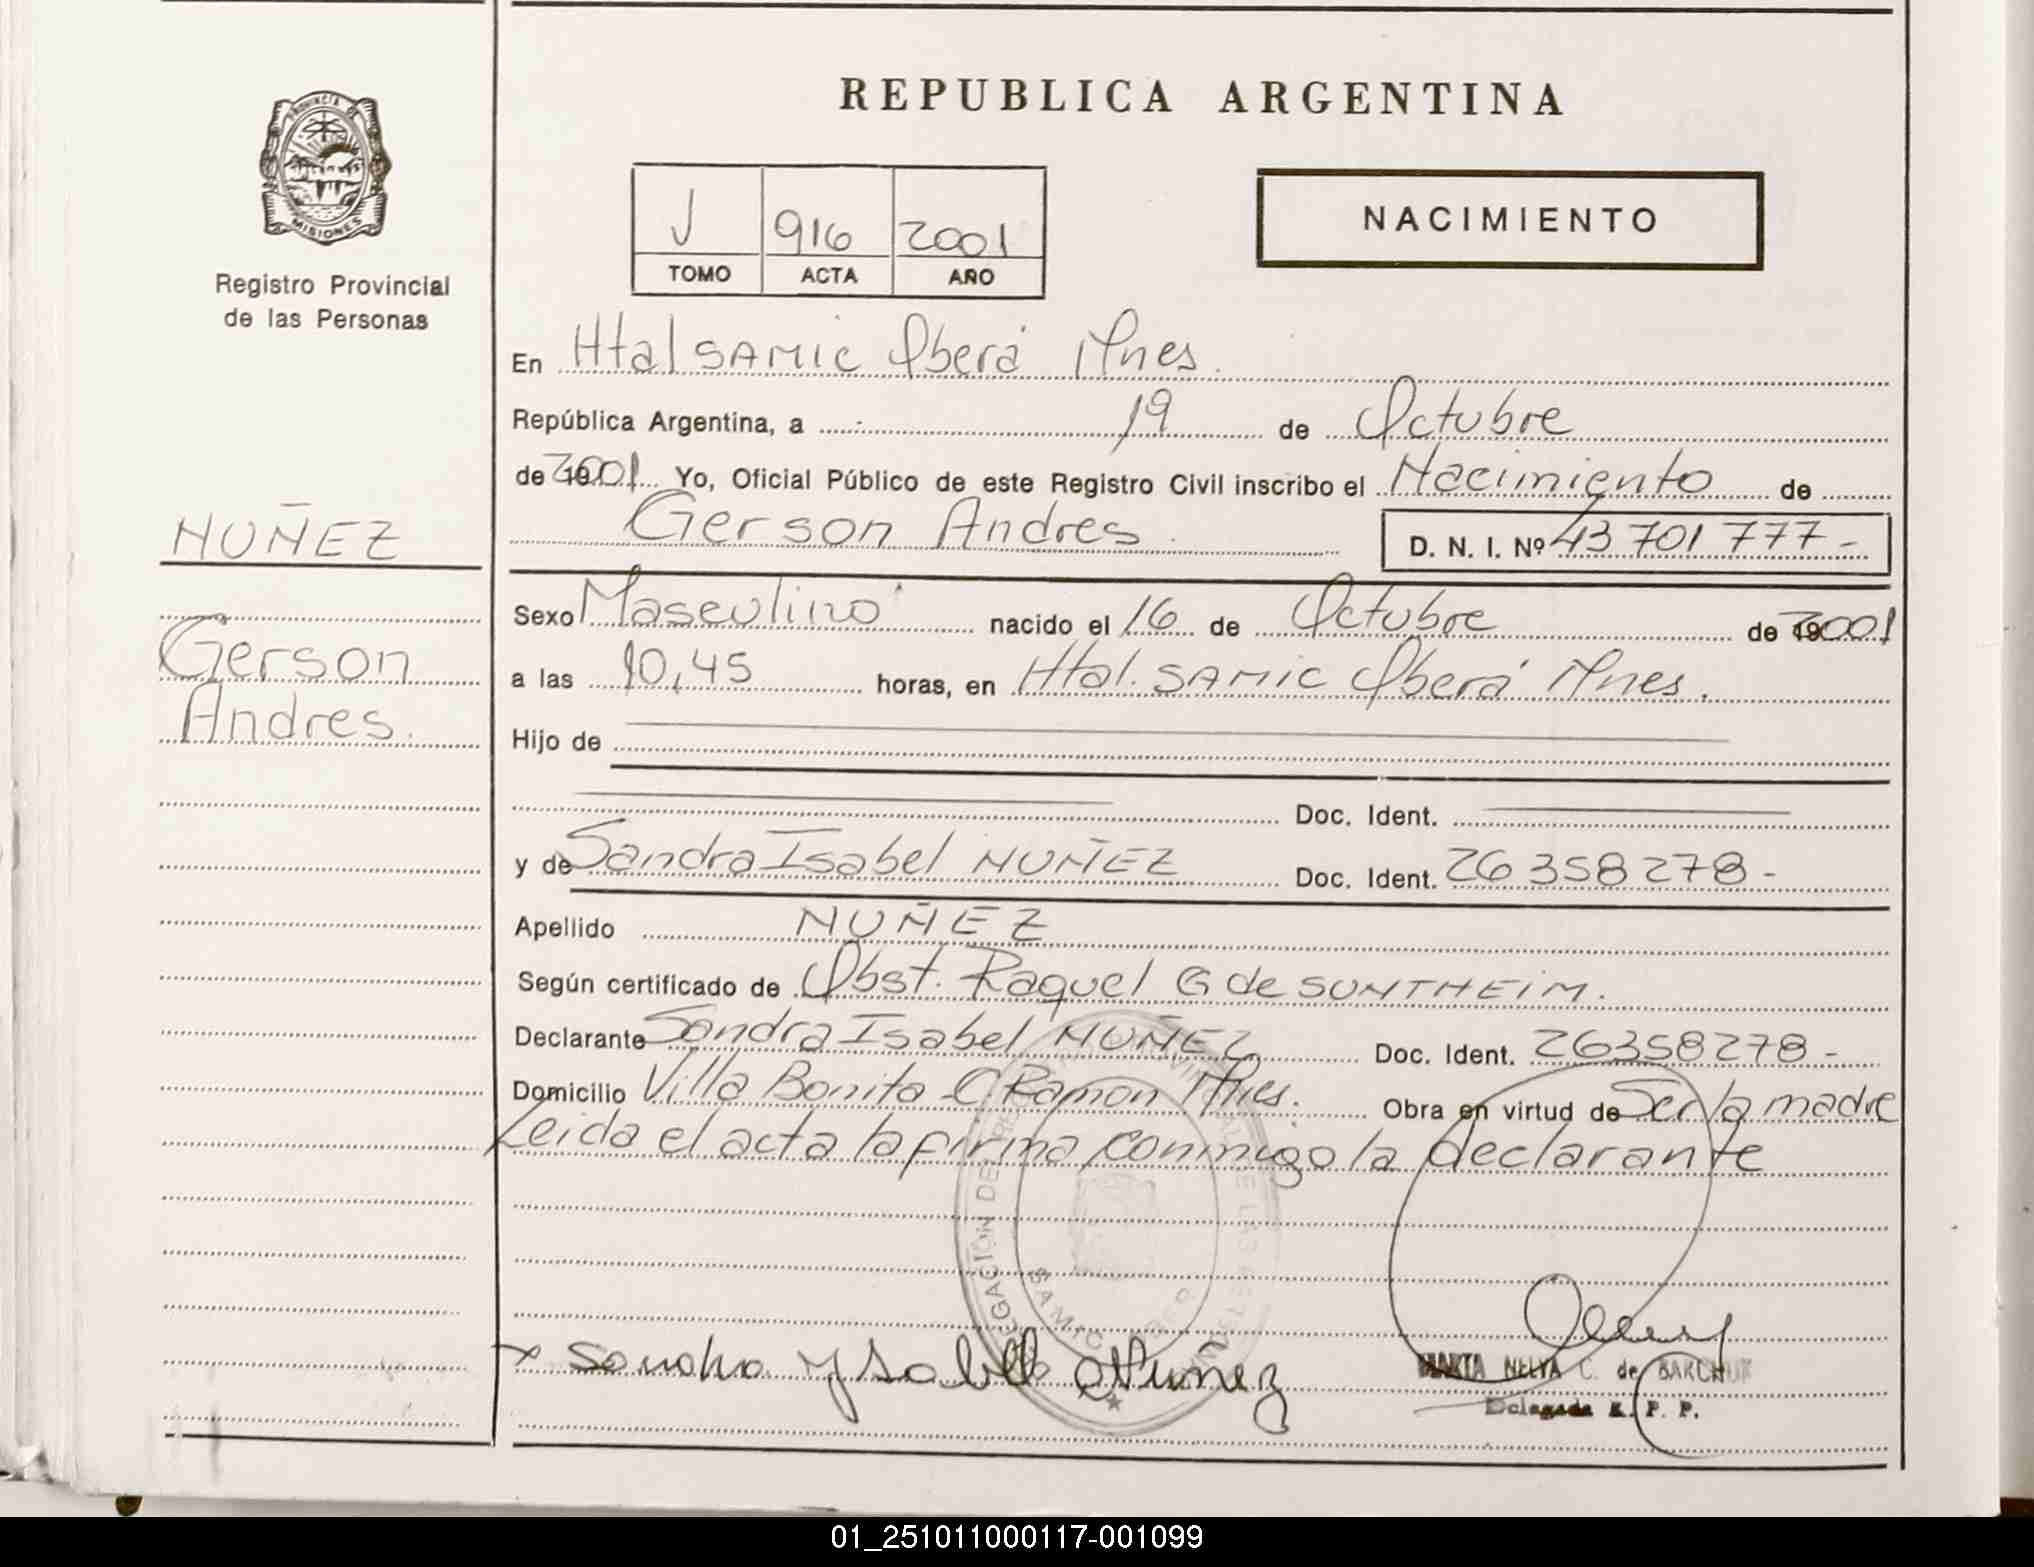 REPUBLICA ARGENTINA
PROVINCIA DE
MISIONES
Registro Provincial
de las Personas
J 916 2001
TOMO ACTA AÑO
NACIMIENTO
En Htal SAMIC Oberá Mnes.
República Argentina, a 19 de Octubre
de 2001 Yo, Oficial Público de este Registro Civil inscribo el Nacimiento de
Gerson Andres. D. N. I. Nº 43 701 777-
NUÑEZ
Gerson
Andres.
Sexo Masculino nacido el 16 de Octubre de 2001
a las 10,45 horas, en Htal. SAMIC Oberá Mnes.
Hijo de
Doc. Ident.
y de Sandra Isabel NUÑEZ Doc. Ident. 26358278-
Apellido NUÑEZ
Según certificado de Obst. Raquel G de SUNTHEIM.
Declarante Sandra Isabel NUÑEZ Doc. Ident. 26358278-
Domicilio Villa Bonita C. Ramon Mnes. Obra en virtud de Ser la madre
Leida el acta la firma conmigo la declarante
SAMIC
x Sandra Ysabel Nuñez
MARTA NELYA C. de
Delegada R. P. P.
01_251011000117-001099